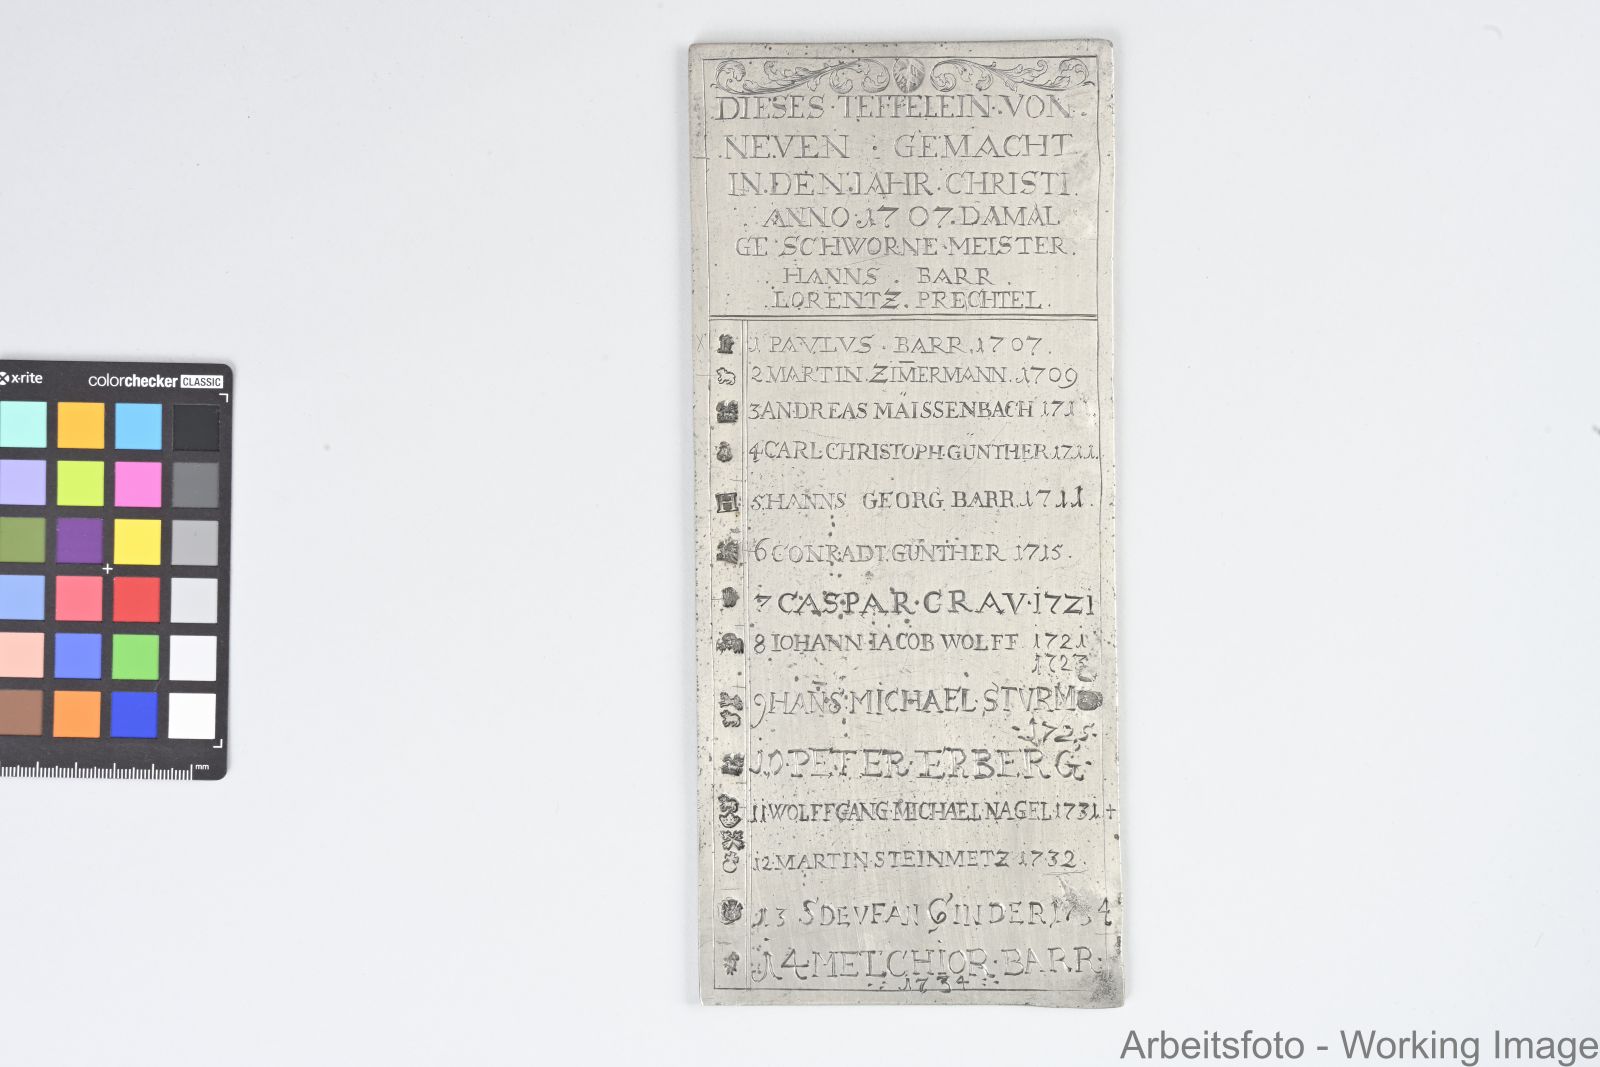 DIESES · TEFFELEIN · VON ·
NEVEN : GEMACHT
IN · DEN · JAHR · CHRISTI ·
ANNO · 1707 · DAMAL
GE SCHWORNE · MEISTER ·
HANNS · BARR ·
LORENTZ · PRECHTEL ·
1 PAVLVS · BARR · 1707 ·
2 MARTIN · ZIM̅ERMANN · 1709
3 ANDREAS MAISSENBACH
4 CARL CHRISTOPH · GÜNTHER 1711 ·
5 · HANNS GEORG BARR · 1711 ·
6 CONRADT · GÜNTHER 1715 ·
7 CASPAR · GRAV · 1721
8 IOHANN · IACOB WOLFF 1721
1723
9 HAN̅S · MICHAEL · STVRM
· 1725 ·
10 PETER · ERBERG ·
11 WOLFFGANG · MICHAEL NAGEL · 1731 +
12 · MARTIN · STEINMETZ · 1732 ·
13 SDEVFAN GINDER 1734
14 MELCHIOR · BARR ·
· : 1734 : ·
x-rite
colorchecker CLASSIC
mm
Arbeitsfoto - Working Image